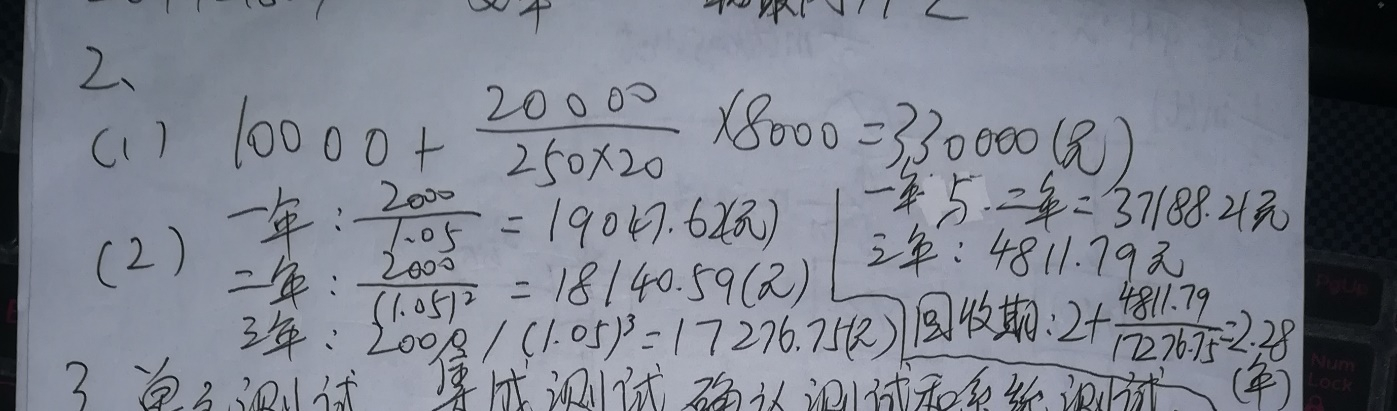 2、
(1) 10000+ 20000/250×20 ×8000=330000(元)
(2) 一年: 2000/1.05 = 19047.62(元)
二年: 2000/(1.05)² = 18140.59(元)
三年: 20000/(1.05)³=17276.75(元)
一年与二年=37188.21元
三年: 4811.79元
回收期:2+ 4811.79/17276.75=2.28(年)
3 单元测试 集成测试 确认测试和系统测试